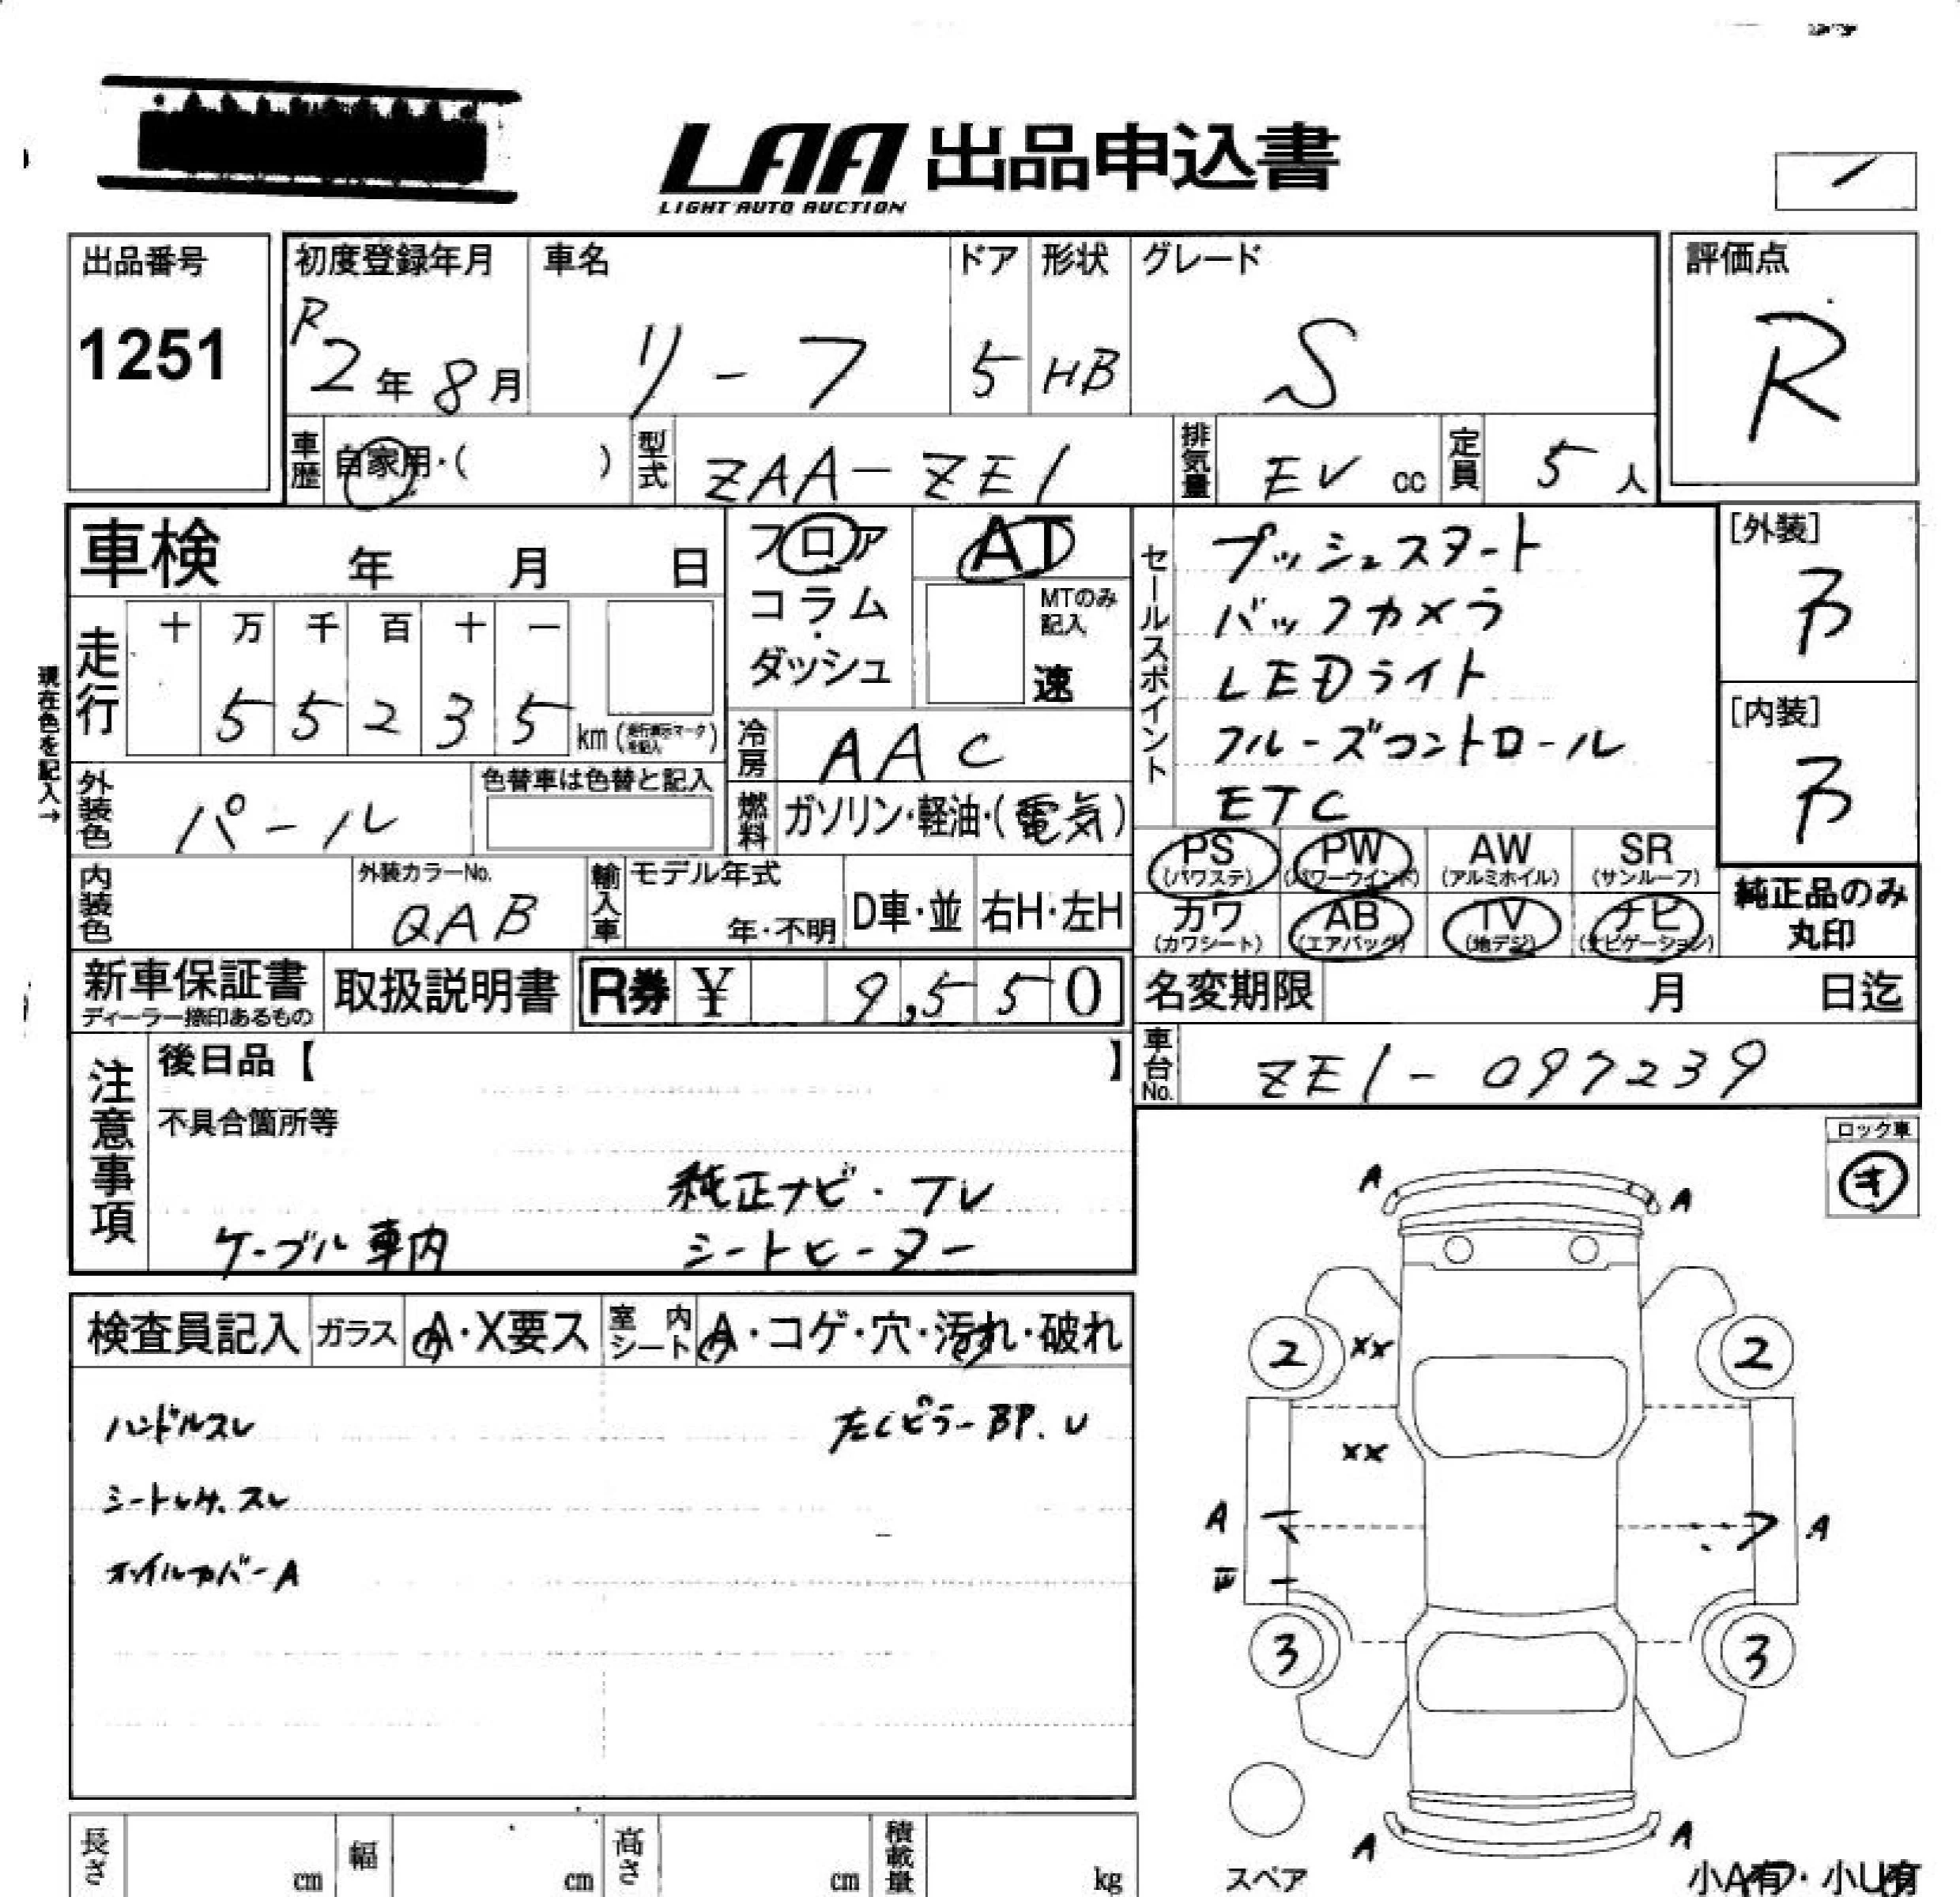 LAA 出品申込書
LIGHT AUTO AUCTION
出品番号
1251
初度登録年月
R2年8月
車名
リーフ
ドア
5
形状
HB
グレード
S
評価点
R
車歴 自家用・( )
型式 ZAA-ZE1
排気量 EV cc
定員 5人
車検 年 月 日
フロア
コラム
・
ダッシュ
AT
MTのみ
記入
速
走行
十 万 千 百 十 一
5 5 2 3 5 km
現在色を記入→
冷房 AAC
外装色 パール
色替車は色替と記入
燃料 ガソリン・軽油・(電気)
内装色
外装カラーNo.
QAB
輸入車
モデル年式
年・不明
D車・並
右H・左H
セールスポイント
プッシュスタート
バックカメラ
LEDライト
クルーズコントロール
ETC
[外装]
[内装]
PS
(パワステ)
PW
(パワーウインド)
AW
(アルミホイル)
SR
(サンルーフ)
カワ
(カワシート)
AB
(エアバッグ)
TV
(地デジ)
ナビ
(ナビゲーション)
純正品のみ
丸印
新車保証書
ディーラー捺印あるもの
取扱説明書
R券 ¥ 9,550
名変期限 月 日迄
車台No. ZE1-097239
注意事項
後日品【 】
不具合箇所等
純正ナビ・TV
ケーブル車内
シートヒーター
ロック車
検査員記入
ガラス A・X要ス
室内シート A・コゲ・穴・汚れ・破れ
ハンドルスレ
左Cピラー BP.U
シートシケ.スレ
ホイルカバーA
A A
2 XX 2
XX
A A
3 3
A A
スペア
小A有・小U有
長さ cm
幅 cm
高さ cm
積載量 kg